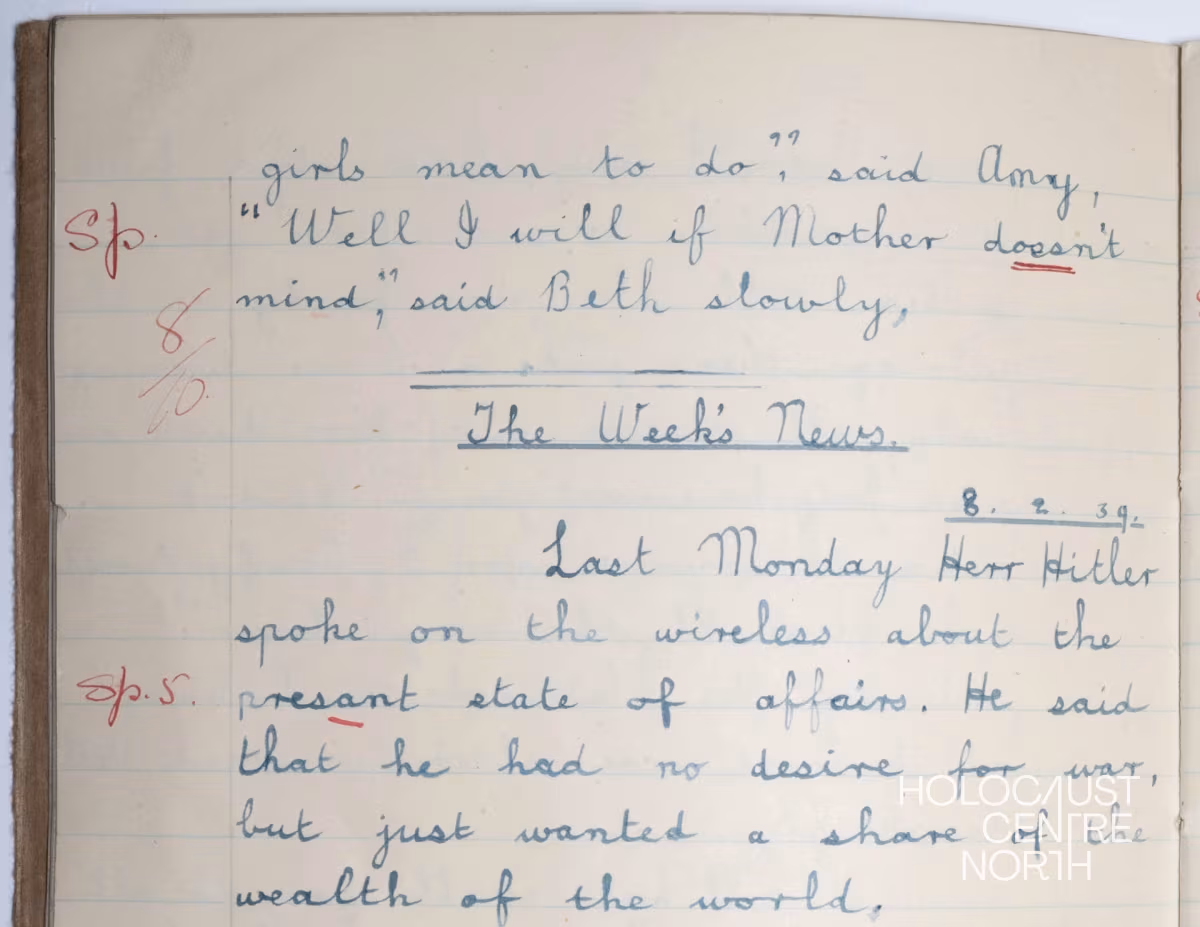 girls mean to do," said Amy,
Sp. "Well I will if Mother doesn't
mind," said Beth slowly,
8/10.
The Week's News.
8. 2. 39.
Last Monday Herr Hitler
spoke on the wireless about the
Sp. 5. presant state of affairs. He said
that he had no desire for war,
but just wanted a share of the
wealth of the world.
HOLOCAUST
CENTRE
NORTH